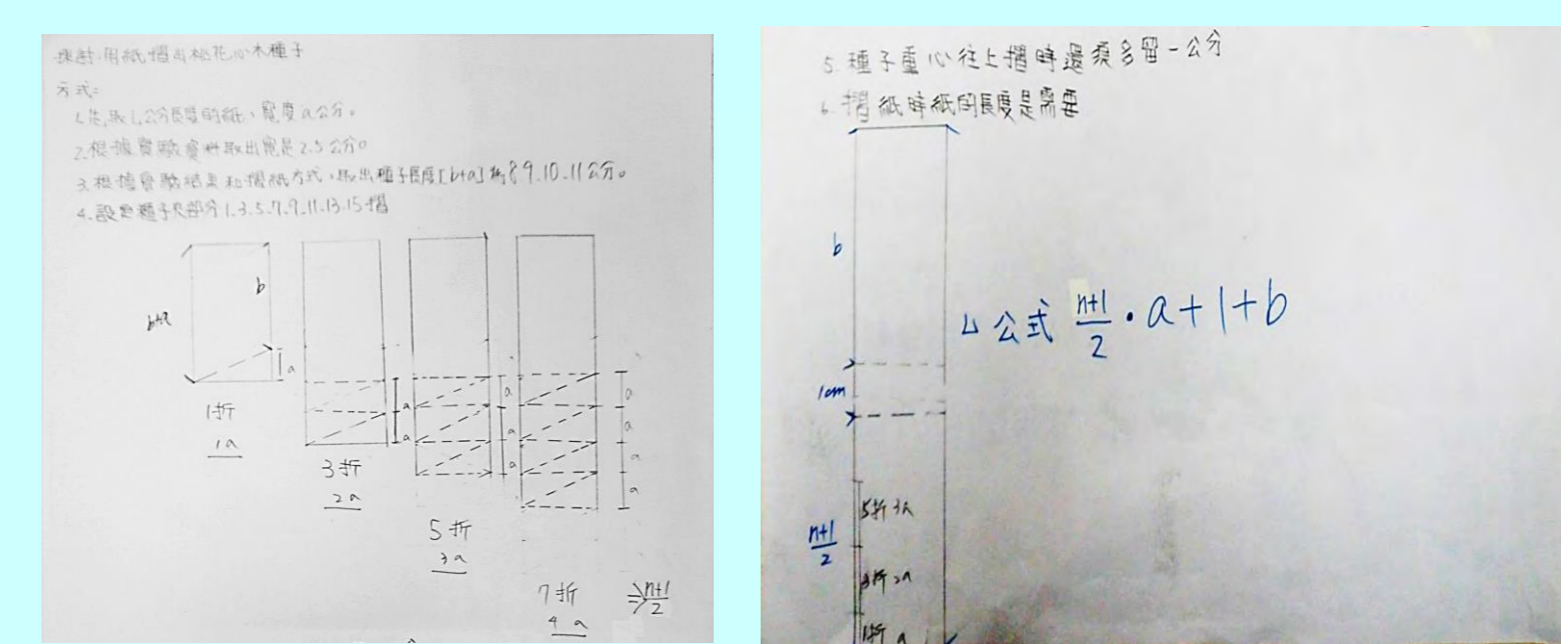 探討:用紙摺出桃花心木種子
方式:
1.先取L公分長度的紙、寬度a公分。
2.根據實驗資料取出寬是2.5公分。
3.根據實驗結果和摺紙方式,取出種子長度[b+a]為8.9.10.11公分。
4.設定種子夾部分1.3.5.7.9.11.13.15摺
b
b+a
a
1折
1a
a
a
3折
2a
a
a
a
5折
3a
a
a
a
a
7折
4a
⇒ n+1/2
5.種子重心往上摺時還須多留一公分
6.摺紙時紙的長度是需要
b
1cm
n+1/2
5折 3a
3折 2a
1折 a
L公式 n+1/2 · a+1+b